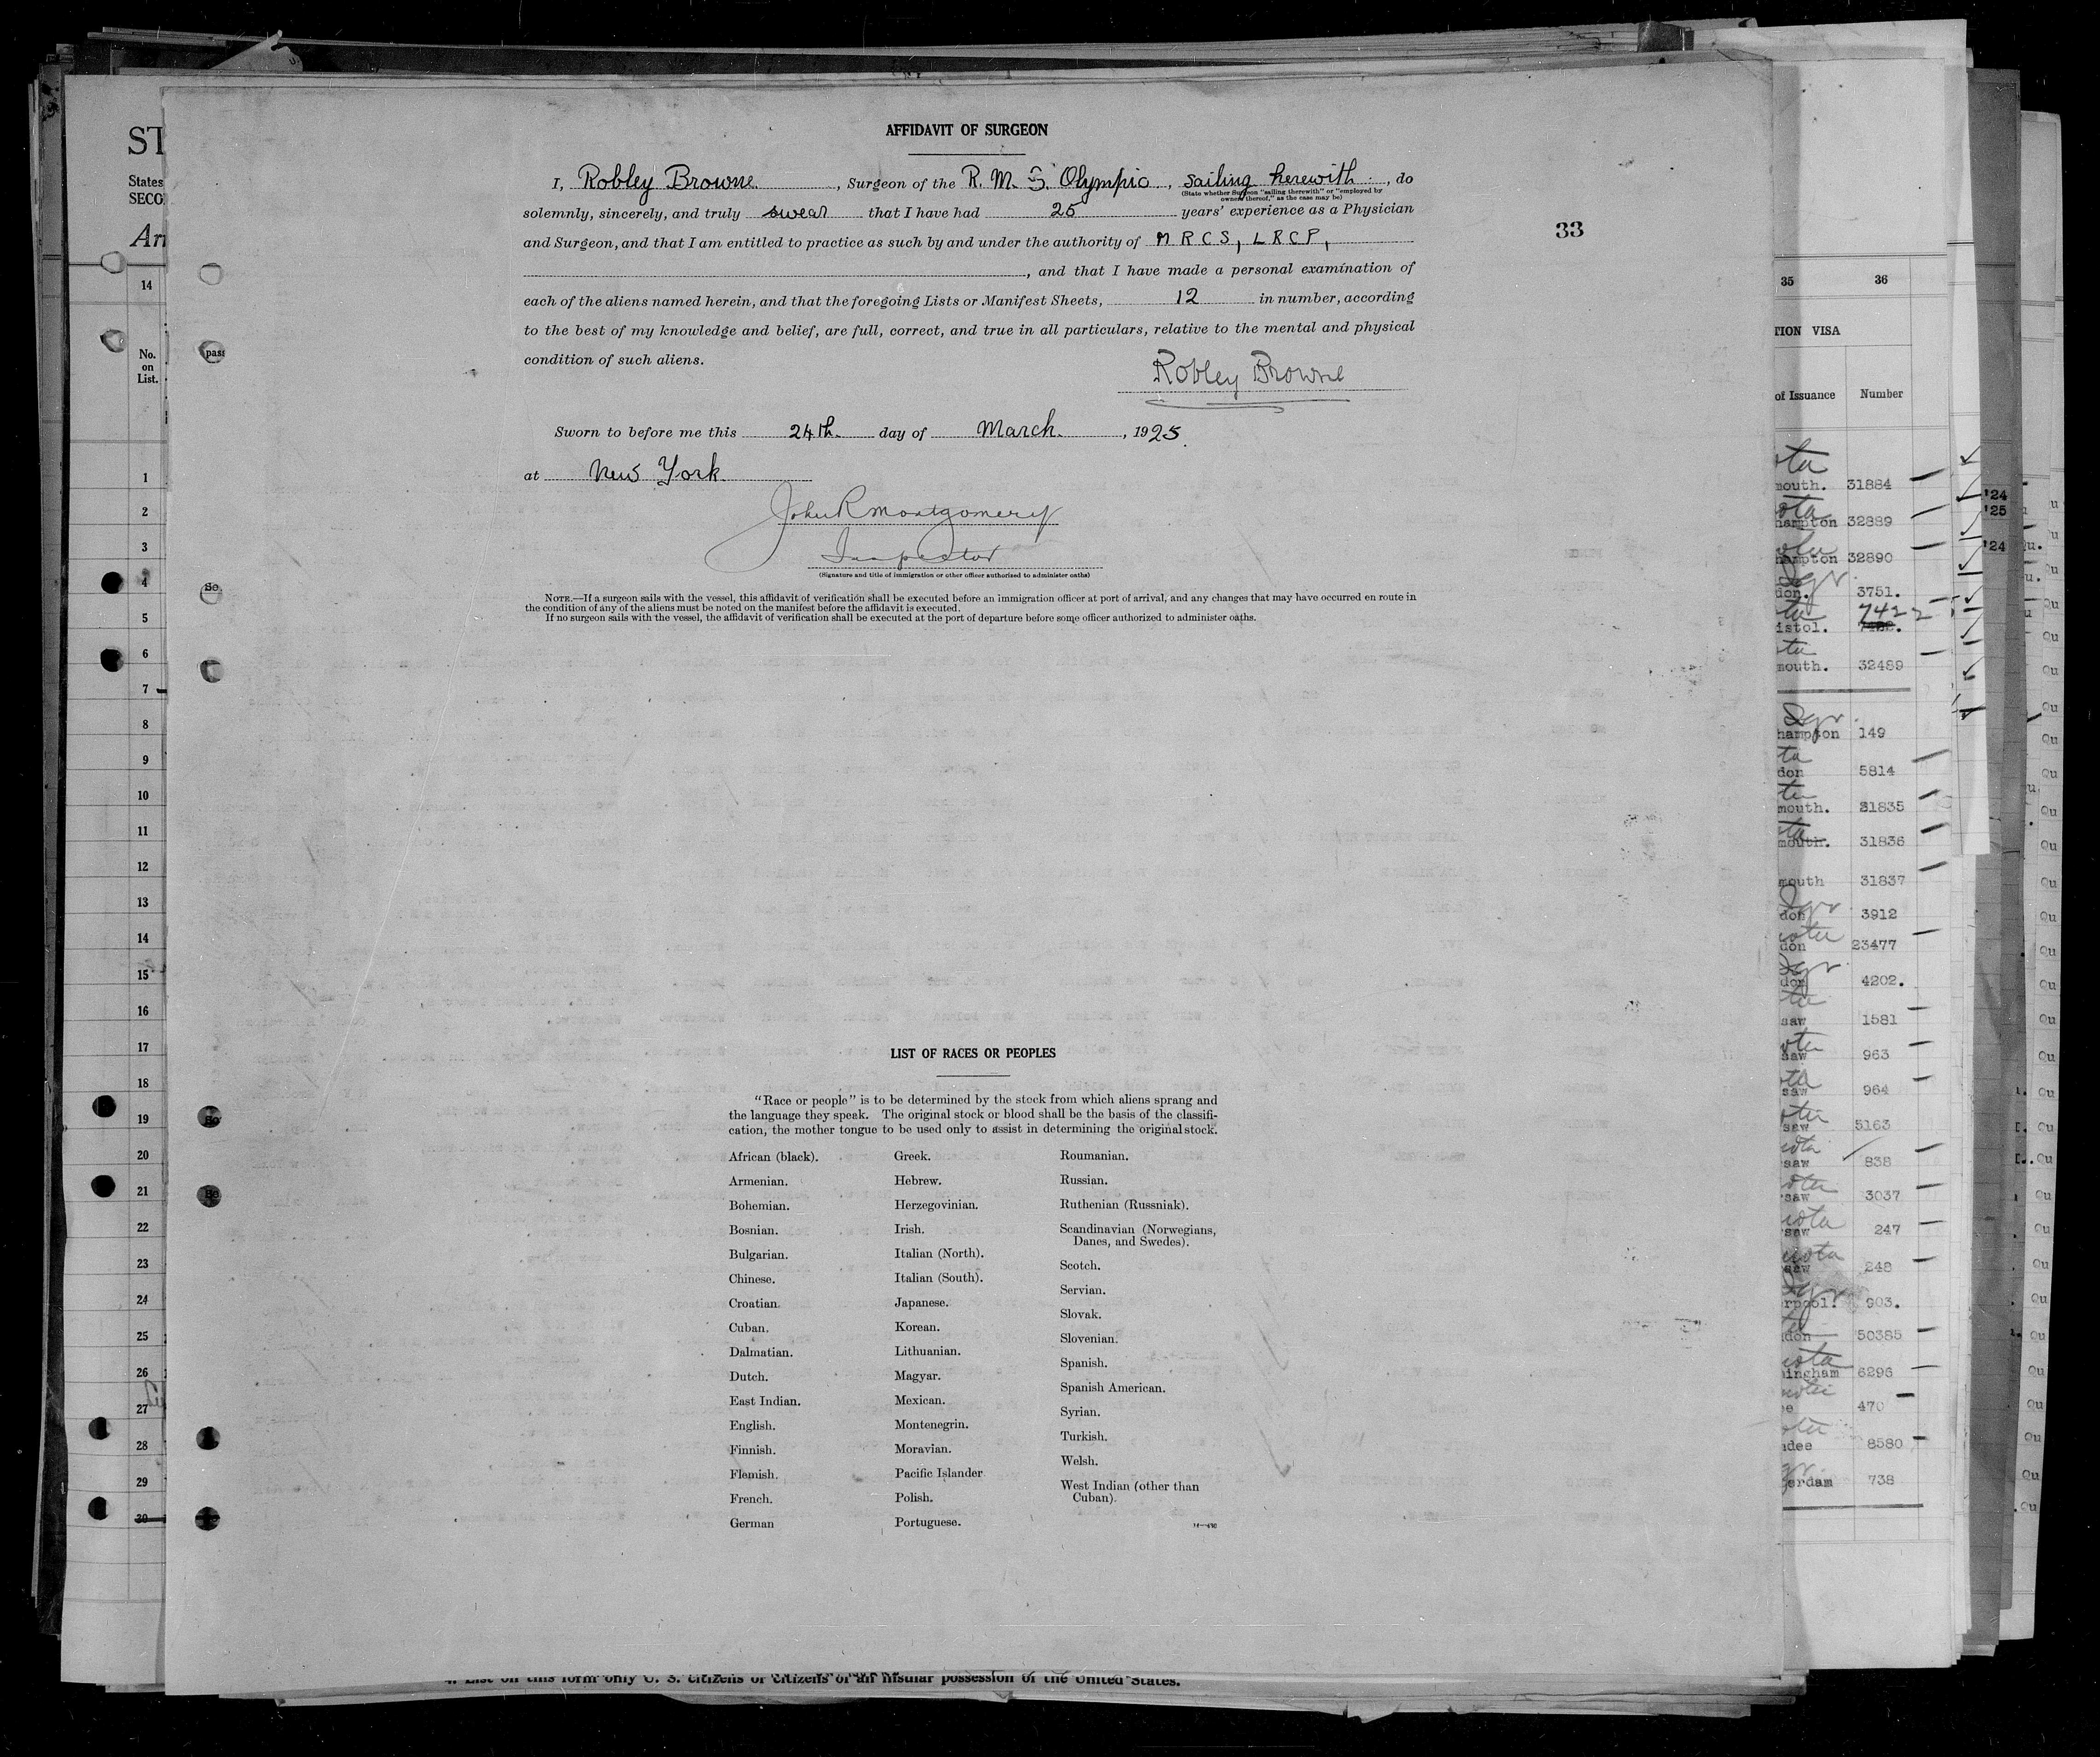 AFFIDAVIT OF SURGEON
I, Robley Browne, Surgeon of the R. M. S. Olympic, sailing herewith, do
(State whether Surgeon "sailing therewith" or "employed by
owners thereof," as the case may be)
solemnly, sincerely, and truly swear that I have had 25 years' experience as a Physician
and Surgeon, and that I am entitled to practice as such by and under the authority of M R C S, L R C P,
, and that I have made a personal examination of
each of the aliens named herein, and that the foregoing Lists or Manifest Sheets, 12 in number, according
to the best of my knowledge and belief, are full, correct, and true in all particulars, relative to the mental and physical
condition of such aliens.
Robley Browne
Sworn to before me this 24th. day of March., 1925.
at New York.
John R Montgomery
Inspector
(Signature and title of immigration or other officer authorized to administer oaths)
NOTE.—If a surgeon sails with the vessel, this affidavit of verification shall be executed before an immigration officer at port of arrival, and any changes that may have occurred en route in
the condition of any of the aliens must be noted on the manifest before the affidavit is executed.
If no surgeon sails with the vessel, the affidavit of verification shall be executed at the port of departure before some officer authorized to administer oaths.
33
LIST OF RACES OR PEOPLES
"Race or people" is to be determined by the stock from which aliens sprang and
the language they speak. The original stock or blood shall be the basis of the classifi-
cation, the mother tongue to be used only to assist in determining the original stock.
African (black).
Armenian.
Bohemian.
Bosnian.
Bulgarian.
Chinese.
Croatian.
Cuban.
Dalmatian.
Dutch.
East Indian.
English.
Finnish.
Flemish.
French.
German
Greek.
Hebrew.
Herzegovinian.
Irish.
Italian (North).
Italian (South).
Japanese.
Korean.
Lithuanian.
Magyar.
Mexican.
Montenegrin.
Moravian.
Pacific Islander
Polish.
Portuguese.
Roumanian.
Russian.
Ruthenian (Russniak).
Scandinavian (Norwegians,
Danes, and Swedes).
Scotch.
Servian.
Slovak.
Slovenian.
Spanish.
Spanish American.
Syrian.
Turkish.
Welsh.
West Indian (other than
Cuban).
ST
States
SECO
Arr
14
No.
on
List.
1
2
3
4
5
6
7
8
9
10
11
12
13
14
15
16
17
18
19
20
21
22
23
24
25
26
27
28
29
30
35 36
TION VISA
of Issuance Number
mouth. 31884
hampton 32889
hampton 32890
don. 3751.
istol. 7422
mouth. 32489
hampton 149
don 5814
mouth. 31835
mouth. 31836
mouth 31837
don 3912
don 23477
don 4202.
saw 1581
saw 963
saw 964
saw 5163
saw 838
saw 3037
saw 247
saw 248
rpool. 903.
don 50385
ingham 6296
e 470
dee 8580
erdam 738
'24
'25
'24
4. List on this form only U. S. citizens or citizens of an insular possession of the United States.